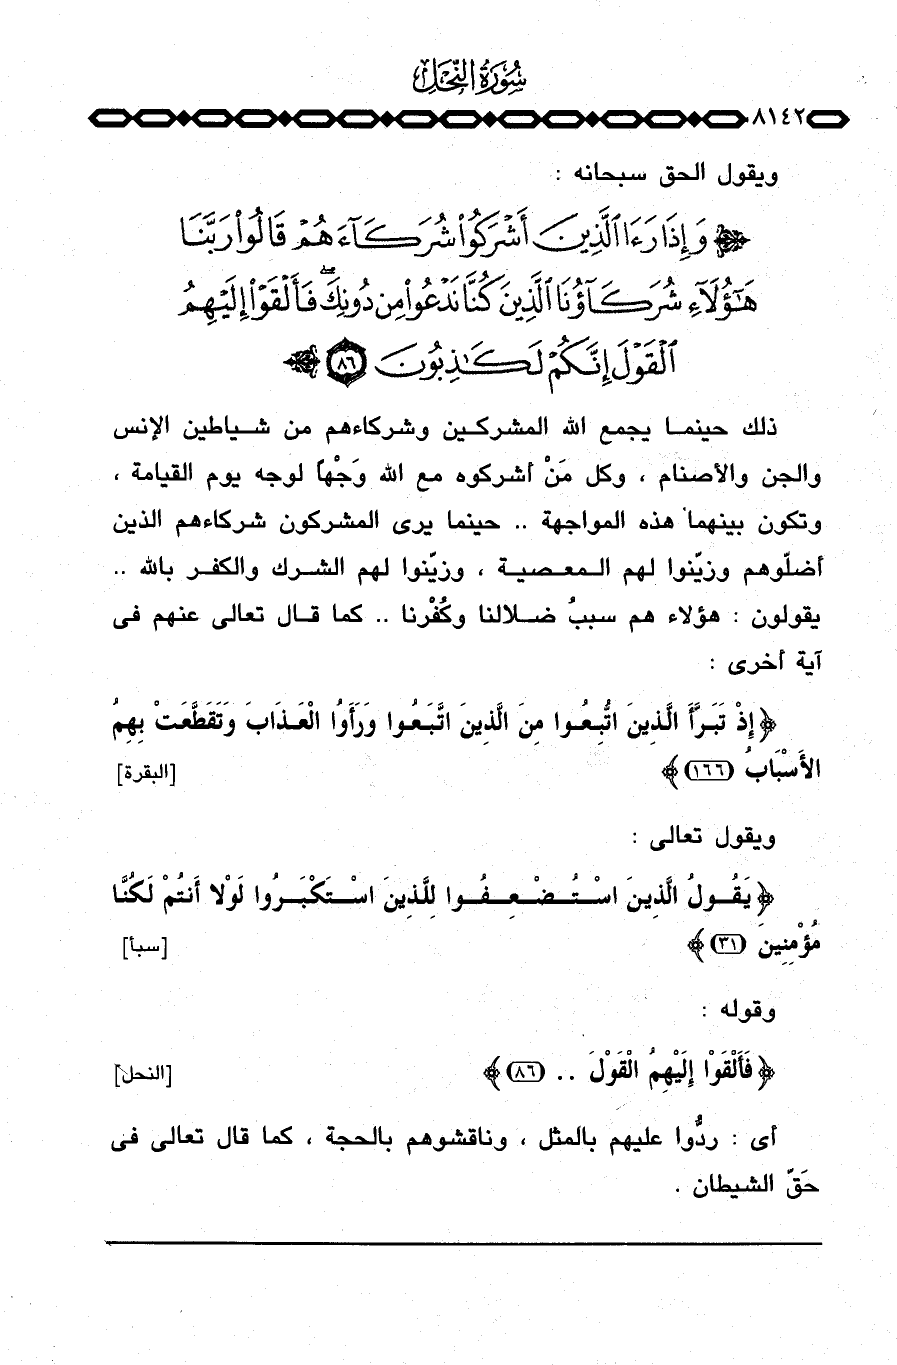 سُورَةُ النَّحْلِ
٨١٤٢
ويقول الحق سبحانه :
وَإِذَا رَءَا ٱلَّذِينَ أَشْرَكُوا۟ شُرَكَآءَهُمْ قَالُوا۟ رَبَّنَا
هَٰٓؤُلَآءِ شُرَكَآؤُنَا ٱلَّذِينَ كُنَّا نَدْعُوا۟ مِن دُونِكَ ۖ فَأَلْقَوْا۟ إِلَيْهِمُ
ٱلْقَوْلَ إِنَّكُمْ لَكَٰذِبُونَ ٨٦
ذلك حينما يجمع الله المشركين وشركاءهم من شياطين الإنس
والجن والأصنام ، وكل مَنْ أشركوه مع الله وَجْهاً لوجه يوم القيامة ،
وتكون بينهما هذه المواجهة .. حينما يرى المشركون شركاءهم الذين
أضلّوهم وزيّنوا لهم المعصية ، وزيّنوا لهم الشرك والكفر بالله ..
يقولون : هؤلاء هم سببُ ضلالنا وكُفْرنا .. كما قال تعالى عنهم فى
آية أخرى :
﴿إِذْ تَبَرَّأَ الَّذِينَ اتُّبِعُوا مِنَ الَّذِينَ اتَّبَعُوا وَرَأَوُا الْعَذَابَ وَتَقَطَّعَتْ بِهِمُ
الأَسْبَابُ (١٦٦)﴾ [البقرة]
ويقول تعالى :
﴿يَقُولُ الَّذِينَ اسْتُضْعِفُوا لِلَّذِينَ اسْتَكْبَرُوا لَوْلا أَنتُمْ لَكُنَّا
مُؤْمِنِينَ (٣١)﴾ [سبأ]
وقوله :
﴿فَأَلْقَوْا إِلَيْهِمُ الْقَوْلَ .. (٨٦)﴾ [النحل]
أى : ردُّوا عليهم بالمثل ، وناقشوهم بالحجة ، كما قال تعالى فى
حَقِّ الشيطان .